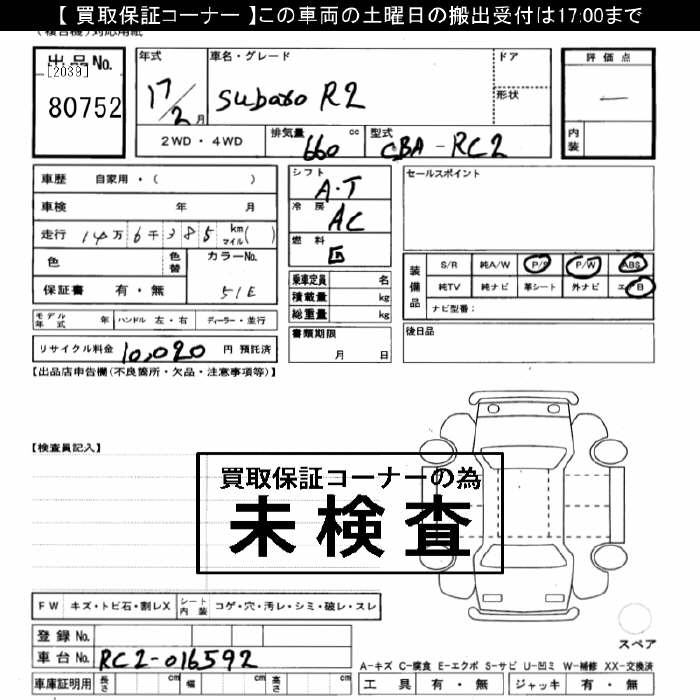 【 買取保証コーナー 】この車両の土曜日の搬出受付は17:00まで
出品No. [2039] 80752
年式 17/2月
車名・グレード Subaro R2
ドア
形状
評価点 —
内装
2WD・4WD
排気量 660 cc
型式 CBA-RC2
車歴 自家用・( )
車検 年 月
走行 14万6千385 km マイル( )
色 色替 カラーNo.
保証書 有・無 51E
シフト A・T
冷房 AC
燃料 G
セールスポイント
装備品 S/R 純A/W P/S P/W ABS
純TV 純ナビ 革シート 外ナビ エ/B
ナビ型番:
乗車定員 名
積載量 kg
総重量 kg
モデル年式 年 ハンドル 左・右 ディーラー・並行
書類期限 月 日
後日品
リサイクル料金 10,020 円 預託済
【出品店申告欄(不良箇所・欠品・注意事項等)】
【検査員記入】
買取保証コーナーの為
未検査
FW キズ・トビ石・割レX シート内装 コゲ・穴・汚レ・シミ・破レ・スレ
登録No.
車台No. RC2-016592
スペア
A-キズ C-腐食 E-エクボ S-サビ U-凹ミ W-補修 XX-交換済
車庫証明用 長さ cm 幅 cm 高さ cm
工具 有・無 ジャッキ 有・無